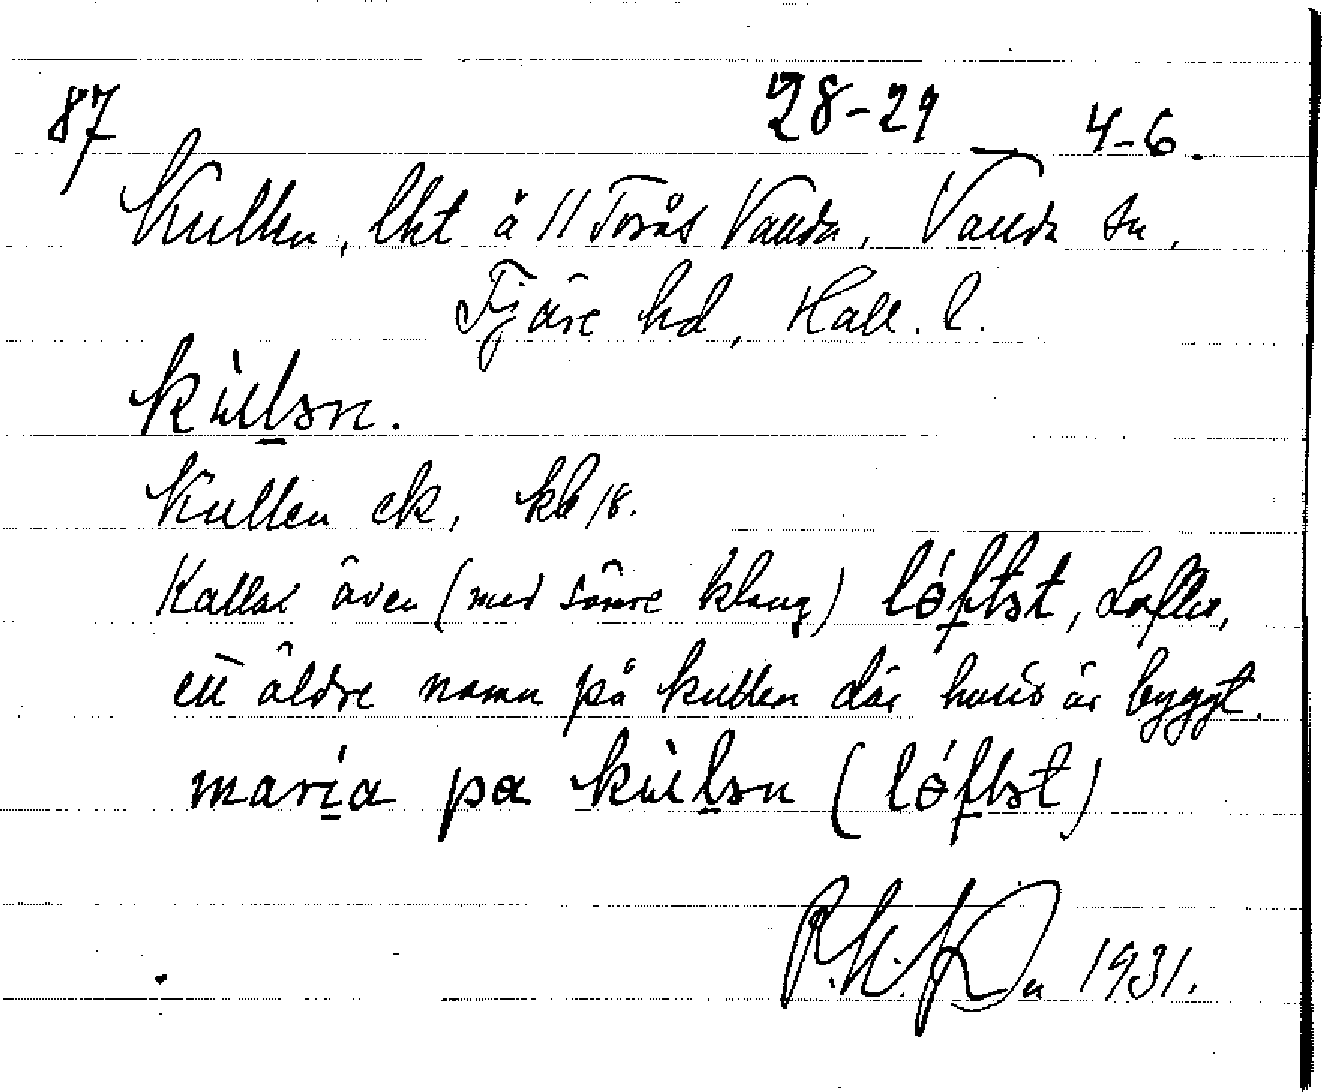 87 28-29 4-6.
Kullen, lht å 11 Torås Vallda, Vallda sn,
Fjäre hd, Hall. l.
kùllən.
Kullen ek, kb 18.
Kallas även (med sämre klang) lóftət, Loftet,
ett äldre namn på kullen där huset är byggt.
maria pa kùlən (lóftət)
1931.